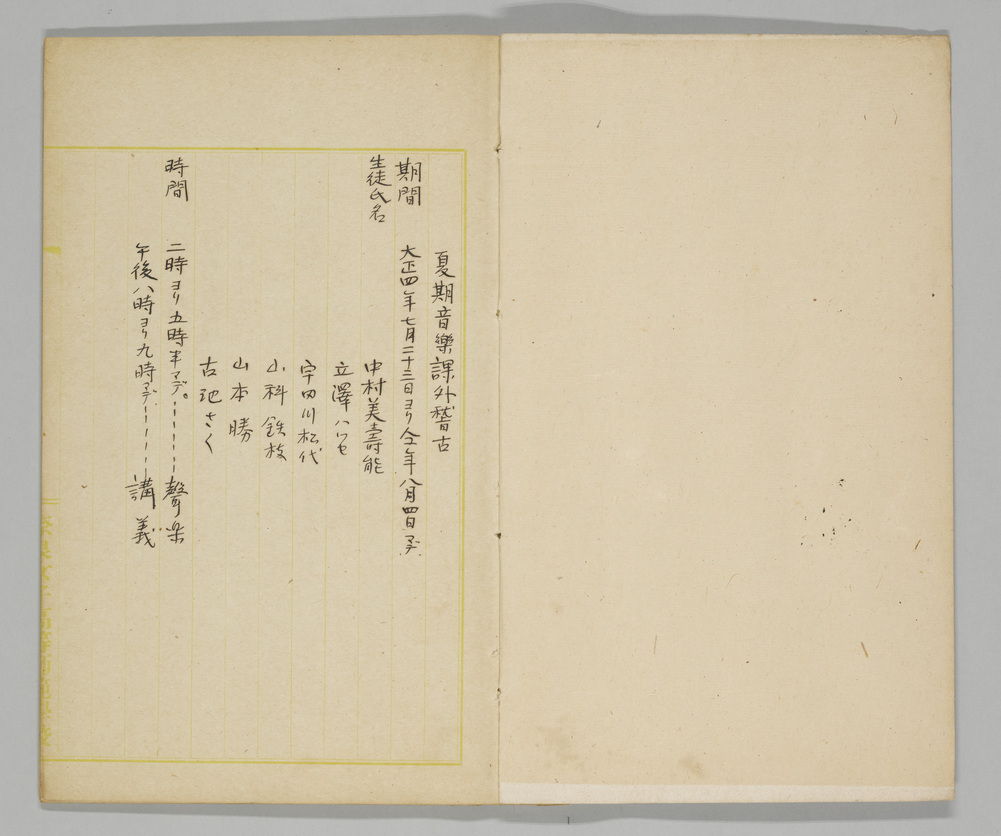 夏期音樂課外稽古
期間 大正四年七月二十三日ヨリ仝年八月四日マデ
生徒氏名 中村美壽能
立澤ハツセ
宇田川松代
山科鉄枝
山本勝
古池さく
時間 二時ヨリ五時半マデ。-----聲楽
午後八時ヨリ九時マデ-----講義
奈良女子高等師範學校